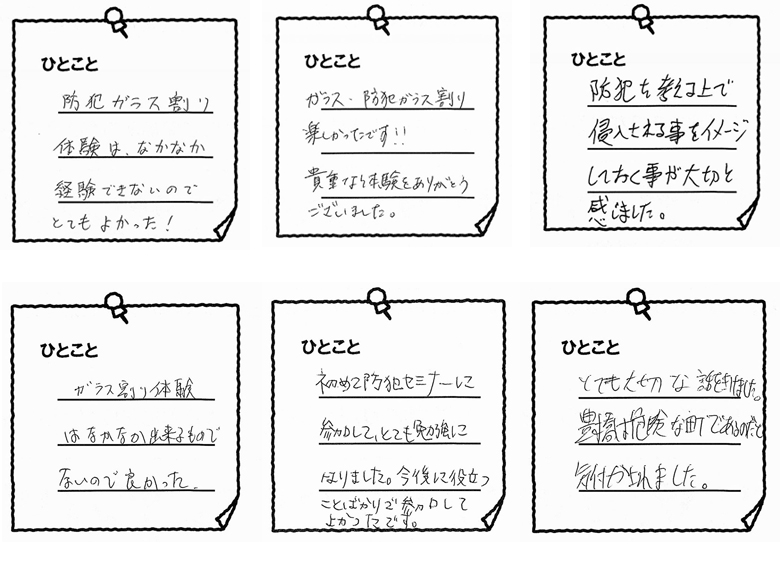 ひとこと
防犯ガラス割り
体験は、なかなか
経験できないので
とてもよかった！
ひとこと
ガラス・防犯ガラス割り
楽しかったです!!
貴重な体験をありがとう
ございました。
ひとこと
防犯を考える上で
侵入される事をイメージ
しておく事が大切と
感じました。
ひとこと
ガラス割り体験
はなかなか出来るもので
ないので良かった。
ひとこと
初めて防犯セミナーに
参加して、とても勉強に
なりました。今後に役立つ
ことばかりで参加して
よかったです。
ひとこと
とても大切な話を聞けました。
豊橋は危険な町であるのだと
気付かされました。